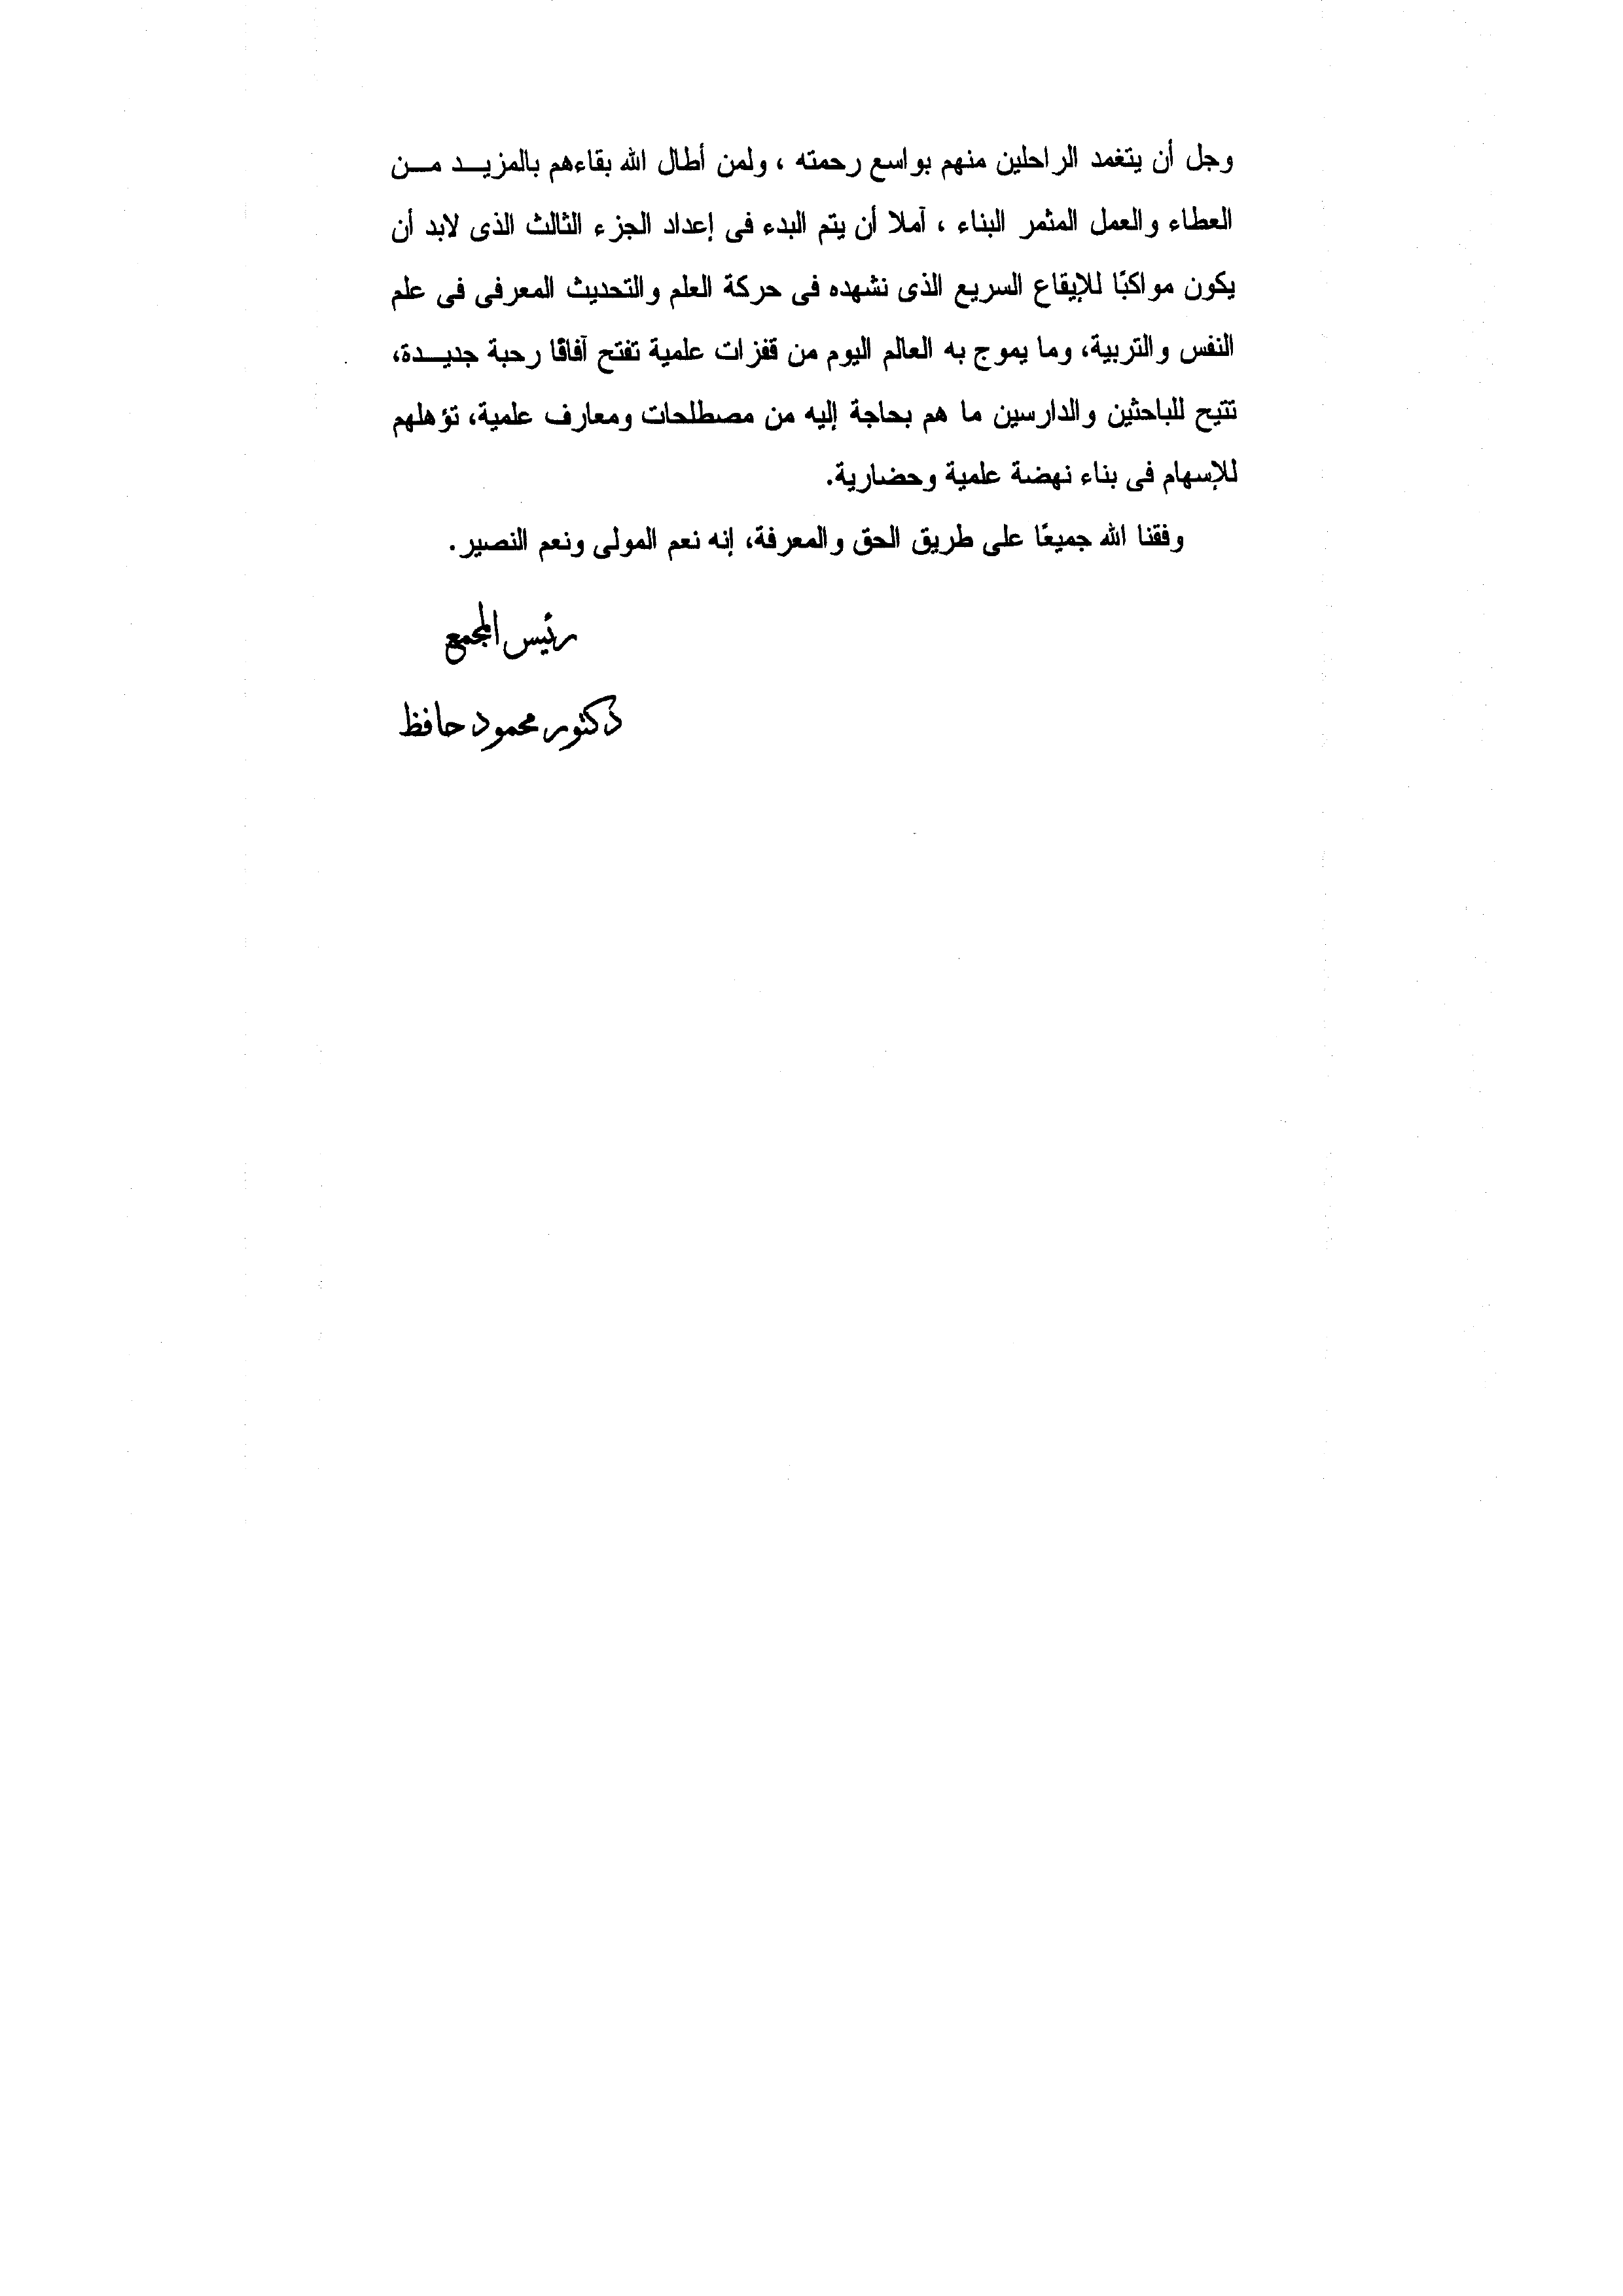 وجل أن يتغمد الراحلين منهم بواسع رحمته ، ولمن أطال الله بقاءهم بالمزيـــد مـــن
العطاء والعمل المثمر البناء ، آملا أن يتم البدء فى إعداد الجزء الثالث الذى لابد أن
يكون مواكبًا للإيقاع السريع الذى نشهده فى حركة العلم والتحديث المعرفى فى علم
النفس والتربية، وما يموج به العالم اليوم من قفزات علمية تفتح آفاقًا رحبة جديـــدة،
تتيح للباحثين والدارسين ما هم بحاجة إليه من مصطلحات ومعارف علمية، تؤهلهم
للإسهام فى بناء نهضة علمية وحضارية.
وفقنا الله جميعًا على طريق الحق والمعرفة، إنه نعم المولى ونعم النصير.
رئيس المجمع
دكتور محمود حافظ